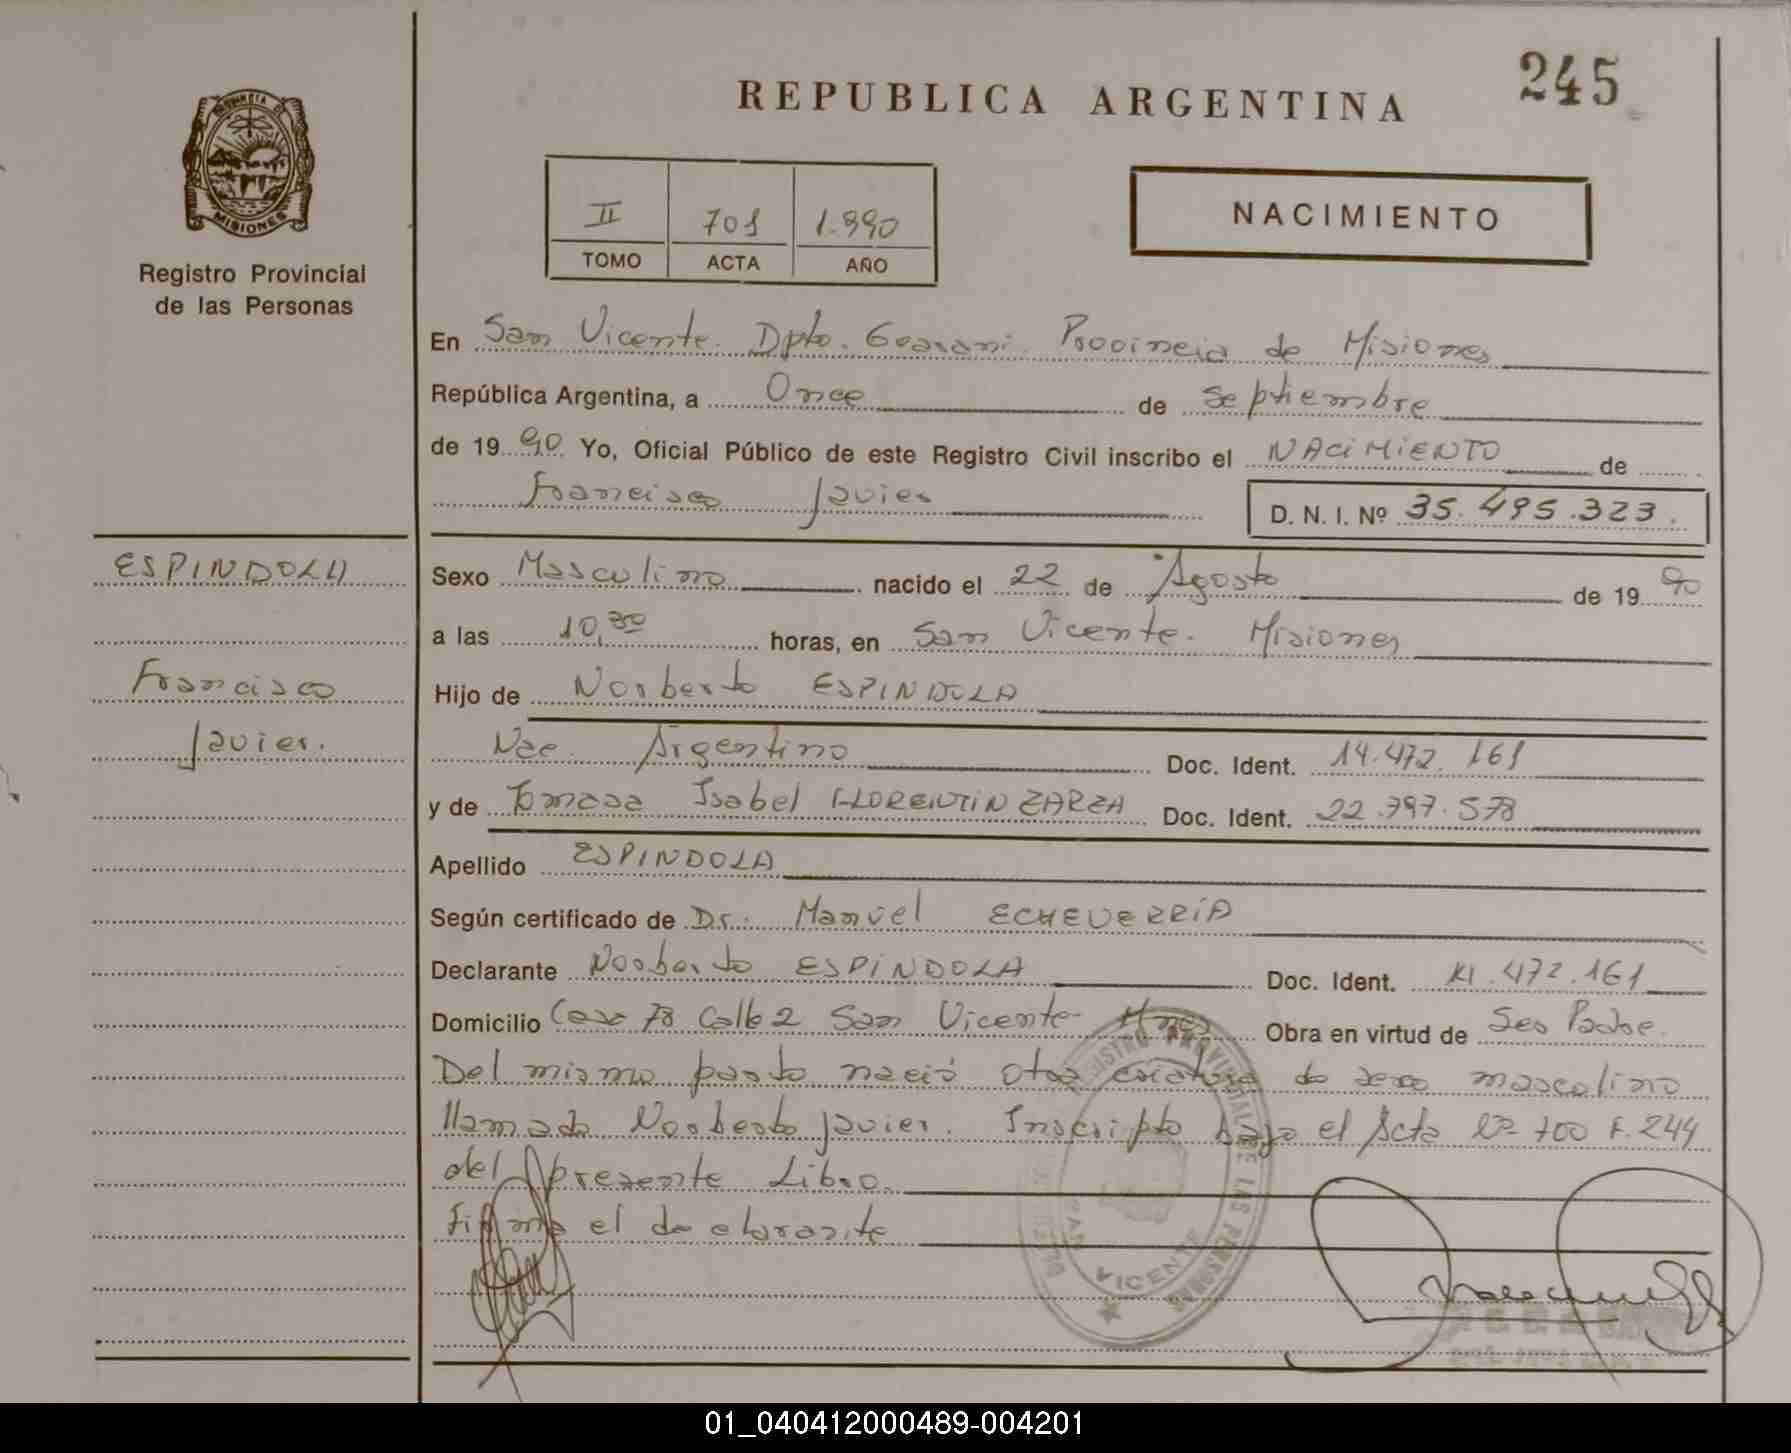 245
REPUBLICA ARGENTINA
PROVINCIA DE
MISIONES
Registro Provincial
de las Personas
II 701 1.990
TOMO ACTA AÑO
NACIMIENTO
En San Vicente. Dpto. Guarani. Provincia de Misiones
República Argentina, a Once de Septiembre
de 1990 Yo, Oficial Público de este Registro Civil inscribo el NACIMIENTO de
Francisco Javier
D. N. I. Nº 35.495.323.
ESPINDOLA
Francisco
Javier.
Sexo Masculino nacido el 22 de Agosto de 1990
a las 10,30 horas, en San Vicente. Misiones
Hijo de Norberto ESPINDOLA
Nac. Argentino Doc. Ident. 14.472.161
y de Tomasa Isabel FLORENTIN ZARZA Doc. Ident. 22.797.578
Apellido ESPINDOLA
Según certificado de Dr. Manuel ECHEVERRÍA
Declarante Norberto ESPINDOLA Doc. Ident. 14.472.161
Domicilio Casa 78 Calle 2 San Vicente- Mnes Obra en virtud de Ser Padre.
Del mismo parto nació otra criatura de sexo masculino
llamado Norberto Javier. Inscripto bajo el Acta Nº 700 F. 244
del presente Libro.
Firma el declarante
REGISTRO PROVINCIAL DE LAS PERSONAS
SAN VICENTE
01_040412000489-004201